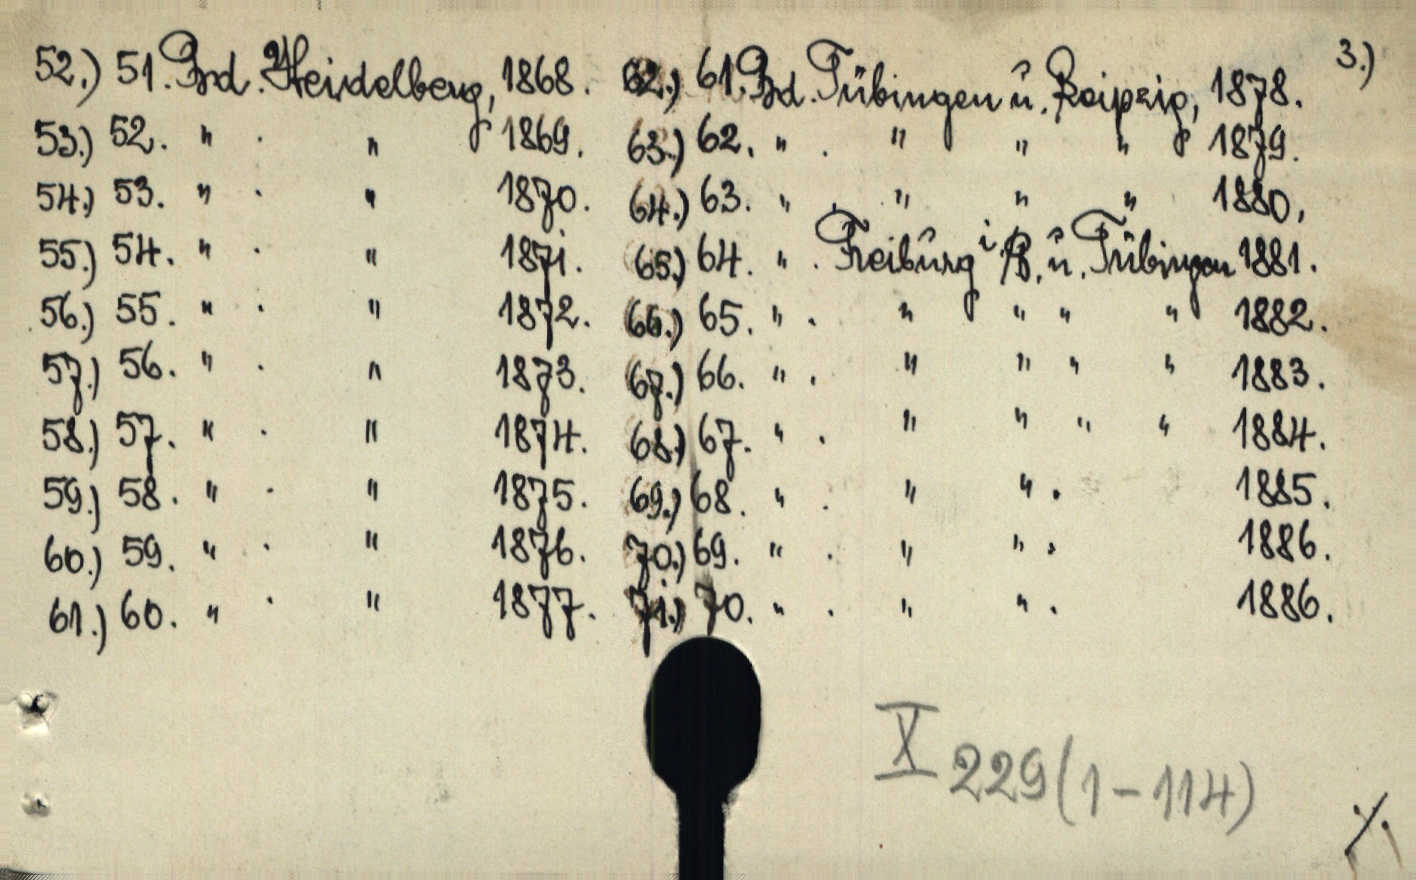 3.)
52.) 51. Bd. Heidelberg, 1868.
53.) 52. " . " 1869.
54.) 53. " . " 1870.
55.) 54. " . " 1871.
56.) 55. " . " 1872.
57.) 56. " . " 1873.
58.) 57. " . " 1874.
59.) 58. " . " 1875.
60.) 59. " . " 1876.
61.) 60. " . " 1877.
62.) 61. Bd. Tübingen u. Leipzig, 1878.
63.) 62. " . " " " 1879.
64.) 63. " . " " " 1880.
65.) 64. " . Freiburg i. B. u. Tübingen 1881.
66.) 65. " . " " " " 1882.
67.) 66. " . " " " " 1883.
68.) 67. " . " " " " 1884.
69.) 68. " . " " . 1885.
70.) 69. " . " " . 1886.
71.) 70. " . " " . 1886.
X 229 (1-114)